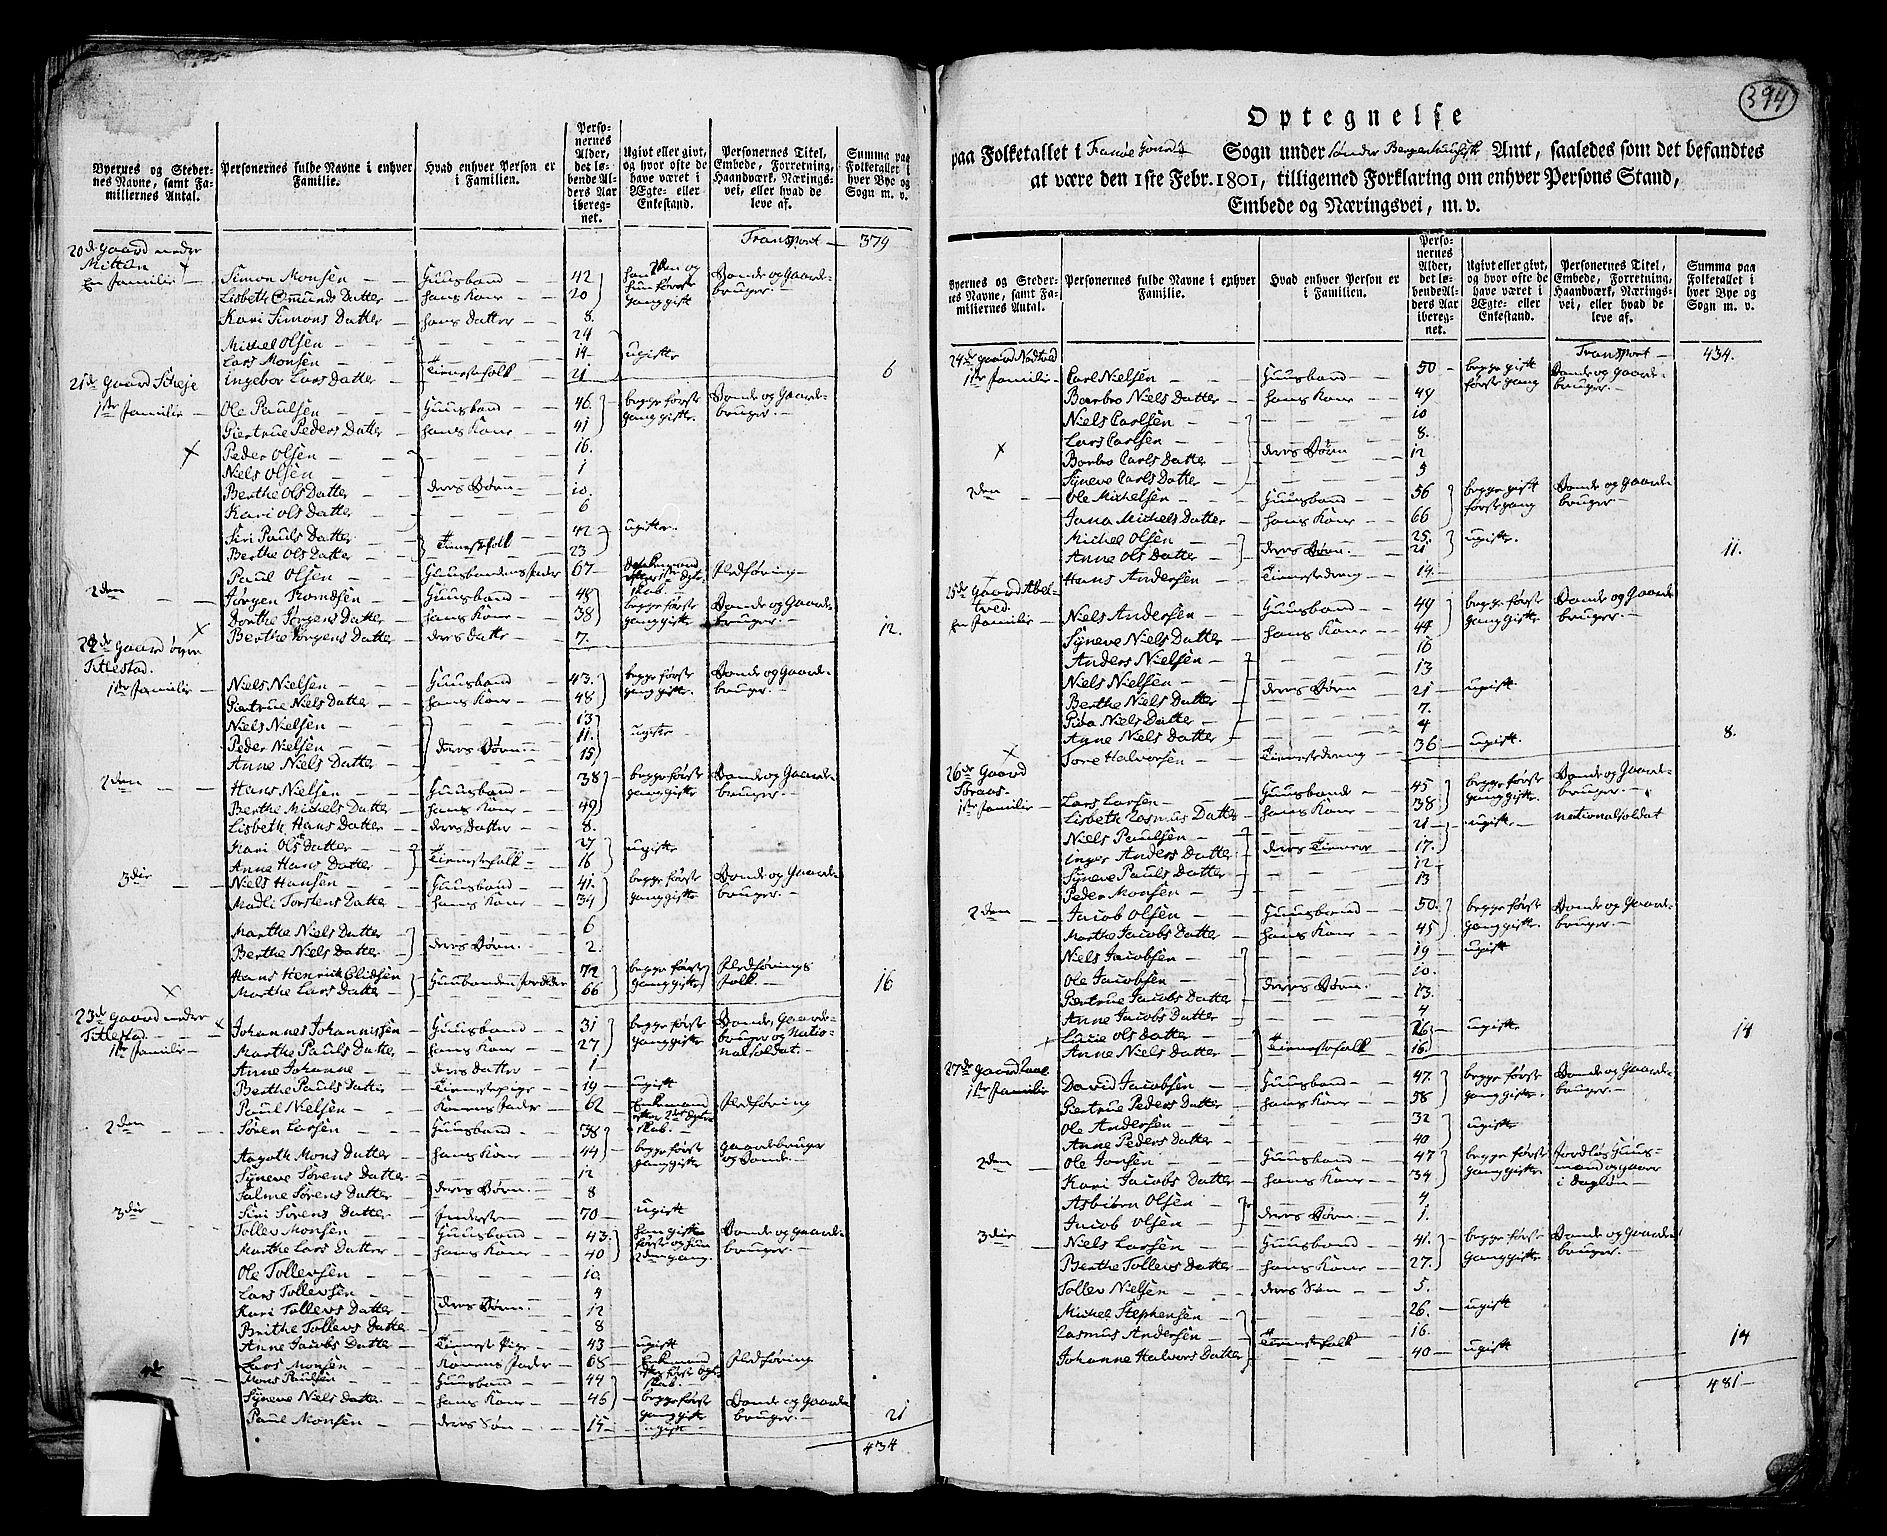 Byernes og Steder-
nes Navne, samt Fa-
milliernes Antal.
Personernes fulde Navne i enhver
Familie.
Hvad enhver Person er
i Familien.
Perso-
nernes
Alder,
det le-
bende Al-
ders Aar
iberegnet.
Ugivt eller givt,
og hvor ofte de
have været i
Ægte- eller
Enkestand.
Personernes Titel,
Embede, Forretning,
Haandværk, Nærings-
vei, eller hvad de
leve af.
Summa paa
Folketallet i
hver Bye og
Sogn m. v.
Transport — 379
20de Gaard nedre
Mitun
En Familie — Simon Monsen — Huusbond — 42 Bonde og Gaard-
Lisbeth Omunds Datter hans Kone — 20 gang gift bruger.
Kari Simons Datter — hans Datter — 8.
Michel Olsen — 24
Lars Monsen — 14 ugifte
Ingebor Lars Datter — Tienestefolk — 21 6
21de Gaard Scheje
1ste Familie — Ole Paulsen — Huusbond — 46 begge første Bonde og Gaard-
Giertrue Peders Datter — hans Kone — 41 gang gifte bruger.
Peder Olsen — 16.
Niels Olsen — 1
Berthe Ols Datter — deres Børn — 10.
Kari Ols Datter — 6
Siri Pauls Datter — 42 ugifte.
Berthe Ols Datter — Tienestefolk — 23
Paul Olsen — Huusbondens Fader 67 Enkemand Føedføring
2den — Jørgen Romdsen — Huusbond — 48 begge første Bonde og Gaard-
Dorthe Jørgens Datter — hans Kone — 38 gang gifte bruger.
Berthe Jørgens Datter — deres datter — 7. 12.
22de Gaard øvre
Titlestad.
1ste Familie — Niels Nielsen — Huusbond — 43. begge første Bonde og Gaard-
Giertrue Niels Datter — hans Kone — 48 gang gifte. bruger.
Niels Nielsen — 13
Peder Nielsen — deres Børn. — 11. ugifte
Anne Niels Datter — 15
2den — Hans Nielsen — Huusbond — 38 begge første Bonde og Gaard-
Berthe Michels Datter — hans Kone — 49 gang gifte bruger.
Lisbeth Hans Datter — deres Datter — 8.
Kari Ols Datter — 27 ugifte
Anne Hans Datter — Tienestefolk — 16
3die — Niels Hansen — Huusbond — 41. begge første Bonde og Gaard-
Madli Torstens Datter — hans Kone — 34 gang gifte bruger.
Marthe Niels Datter — 6
Berthe Niels Datter — deres Børn. — 2.
Hans Henrich — 72 begge første Føedførings
Marthe Lars Datter — 66 gang gifte folk. — 16
23de Gaard nedre
Titlestad.
1ste Familie — Johannes Johannissen — Huusbond — 31 begge første Bonde, Gaard-
Marthe Pauls Datter — hans Kone — 27 gang gifte bruger og Natio-
nalsoldat.
Anne Johanne — deres datter — 1
Berthe Pauls Datter — Tienestepige — 19 — ugift
Paul Nielsen — Konens Fader — 62 Enkemand Føedføring
2den — Søren Larsen — Huusbond — 38
Aagoth Mons Datter — hans Kone — 44 begge første gang gifte Gaardbruger
og Bonde.
Syneve Sørens Datter — 12
Salme Sørens Datter — deres Børn. — 8
Siri Sørens Datter — 70 — ugift
3die — Tollev Monsen — Huusbond — 43. Bonde og Gaard-
Marthe Lars Datter — hans Kone — 40 2den gang. bruger.
Ole Tollevsen — 10.
Lars Tollevsen — 4
Kari Tollevs Datter — deres Børn. — 12
Brithe Tollevs Datter — 8
Anne Jacobs Datter — Tienest Pige — 43 — ugift
Lars Monsen — Konens Fader — 68 Enkemand Føedføring
4de — Mons Paulsen — Huusbond — 44
Syneve Niels Datter — hans Kone — 46 begge første Bonde og Gaard-
Paul Monsen — deres Søn — 15 ugift bruger. 21
434.
394
Optegnelse
paa Folketallet i Fanøe Sogn Sogn under Sønder Bergenhuus Amt, saaledes som det befandtes
at være den 1ste Febr. 1801, tilligemed Forklaring om enhver Persons Stand,
Embede og Næringsvei, m. v.
Byernes og Steder-
nes Navne, samt Fa-
milliernes Antal.
Personernes fulde Navne i enhver
Familie.
Hvad enhver Person er
i Familien.
Perso-
nernes
Alder,
det le-
bende Al-
ders Aar
iberegnet.
Ugivt eller givt,
og hvor ofte de
have været i
Ægte- eller
Enkestand.
Personernes Titel,
Embede, Forretning,
Haandværk, Nærings-
vei, eller hvad de
leve af.
Summa paa
Folketallet i
hver Bye og
Sogn m. v.
Transport — 434.
24de Gaard Nattvad
1ste Familie — Carl Nielsen — Huusbond — 50 begge gift Bonde og Gaard-
Barbro Niels Datter — hans Kone — 49 første gang bruger.
Niels Carlsen — 10
Lars Carlsen — 8.
Barbro Carls Datter — deres Børn — 12
Syneve Carls Datter — 5
2den — Ole Michelsen — Huusbond — 56 begge gift Bonde og Gaard-
Jana Michels Datter — hans Kone — 66 første gang bruger
Michel Olsen — 25. ugifte.
Anne Ols Datter — deres Børn. — 21
Hans Andersen — Tienestedreng — 14. 11.
25de Gaard Abel-
tved.
En Familie — Niels Andersen — Huusbond — 49 begge første Bonde og Gaard-
Syneve Niels Datter — hans Kone — 44 gang gifte bruger.
Anders Nielsen — 16
Niels Nielsen — 13
Berthe Niels Datter — deres Børn — 21 — ugift
Niels Datter — 7.
Anne Niels Datter — 4
Tore Halvorsen — Tienestedreng — 36 — ugift. 8.
26de Gaard
Straas.
1ste Familie — Lars Larsen — Huusbonde — 45 begge første Bonde og Gaard-
Lisbeth Rasmus Datter — hans Kone — 38 gang gifte. bruger.
Niels Paulsen — 21 — ugifte — Nationalsoldat
Inger Anders Datter — deres Tienere — 17.
Syneve Pauls Datter — 12
Peder Monsen — 13
2den — Jacob Olsen — Huusbond — 50. begge første Bonde og Gaard-
Marthe Jacobs Datter — hans Kone — 45 gang gifte. bruger.
Niels Jacobsen — 19 — ugift
Ole Jacobsen — 10.
Giertrue Jacobs Datter — deres Børn. — 13.
Anne Jacobs Datter — 4
Ols Datter — 26 — ugifte
Anne Niels Datter — Tienestefolk — 16. 14
27de Gaard
1ste Familie — David Jacobsen — Huusbond — 47. begge første Bonde og Gaard-
Giertrue Peders Datter — hans Kone — 58 gang gifte. bruger.
Ole Andersen — 32 ugifte
Anne Peders Datter — 40
2den — Ole Jonsen — Huusbond — 47 begge første Jordløs Huus-
Kari Jacobs Datter — hans Kone — 34 gang gifte mand og gaaer
i Dagløn
Asbiørn Olsen — 4
Jacob Olsen — deres Børn. — 1.
3die — Niels Larsen — Huusbond — 41. begge første Bonde og Gaard-
Berthe Tollevs Datter — hans Kone — 27. gang gifte bruger.
Tollev Nielsen — deres Søn — 5.
Michel Stephensen — 26. — ugift
Rasmus Andersen — Tienestefolk — 16.
Johanne Halvors Datter — 40 — ugift 14
481